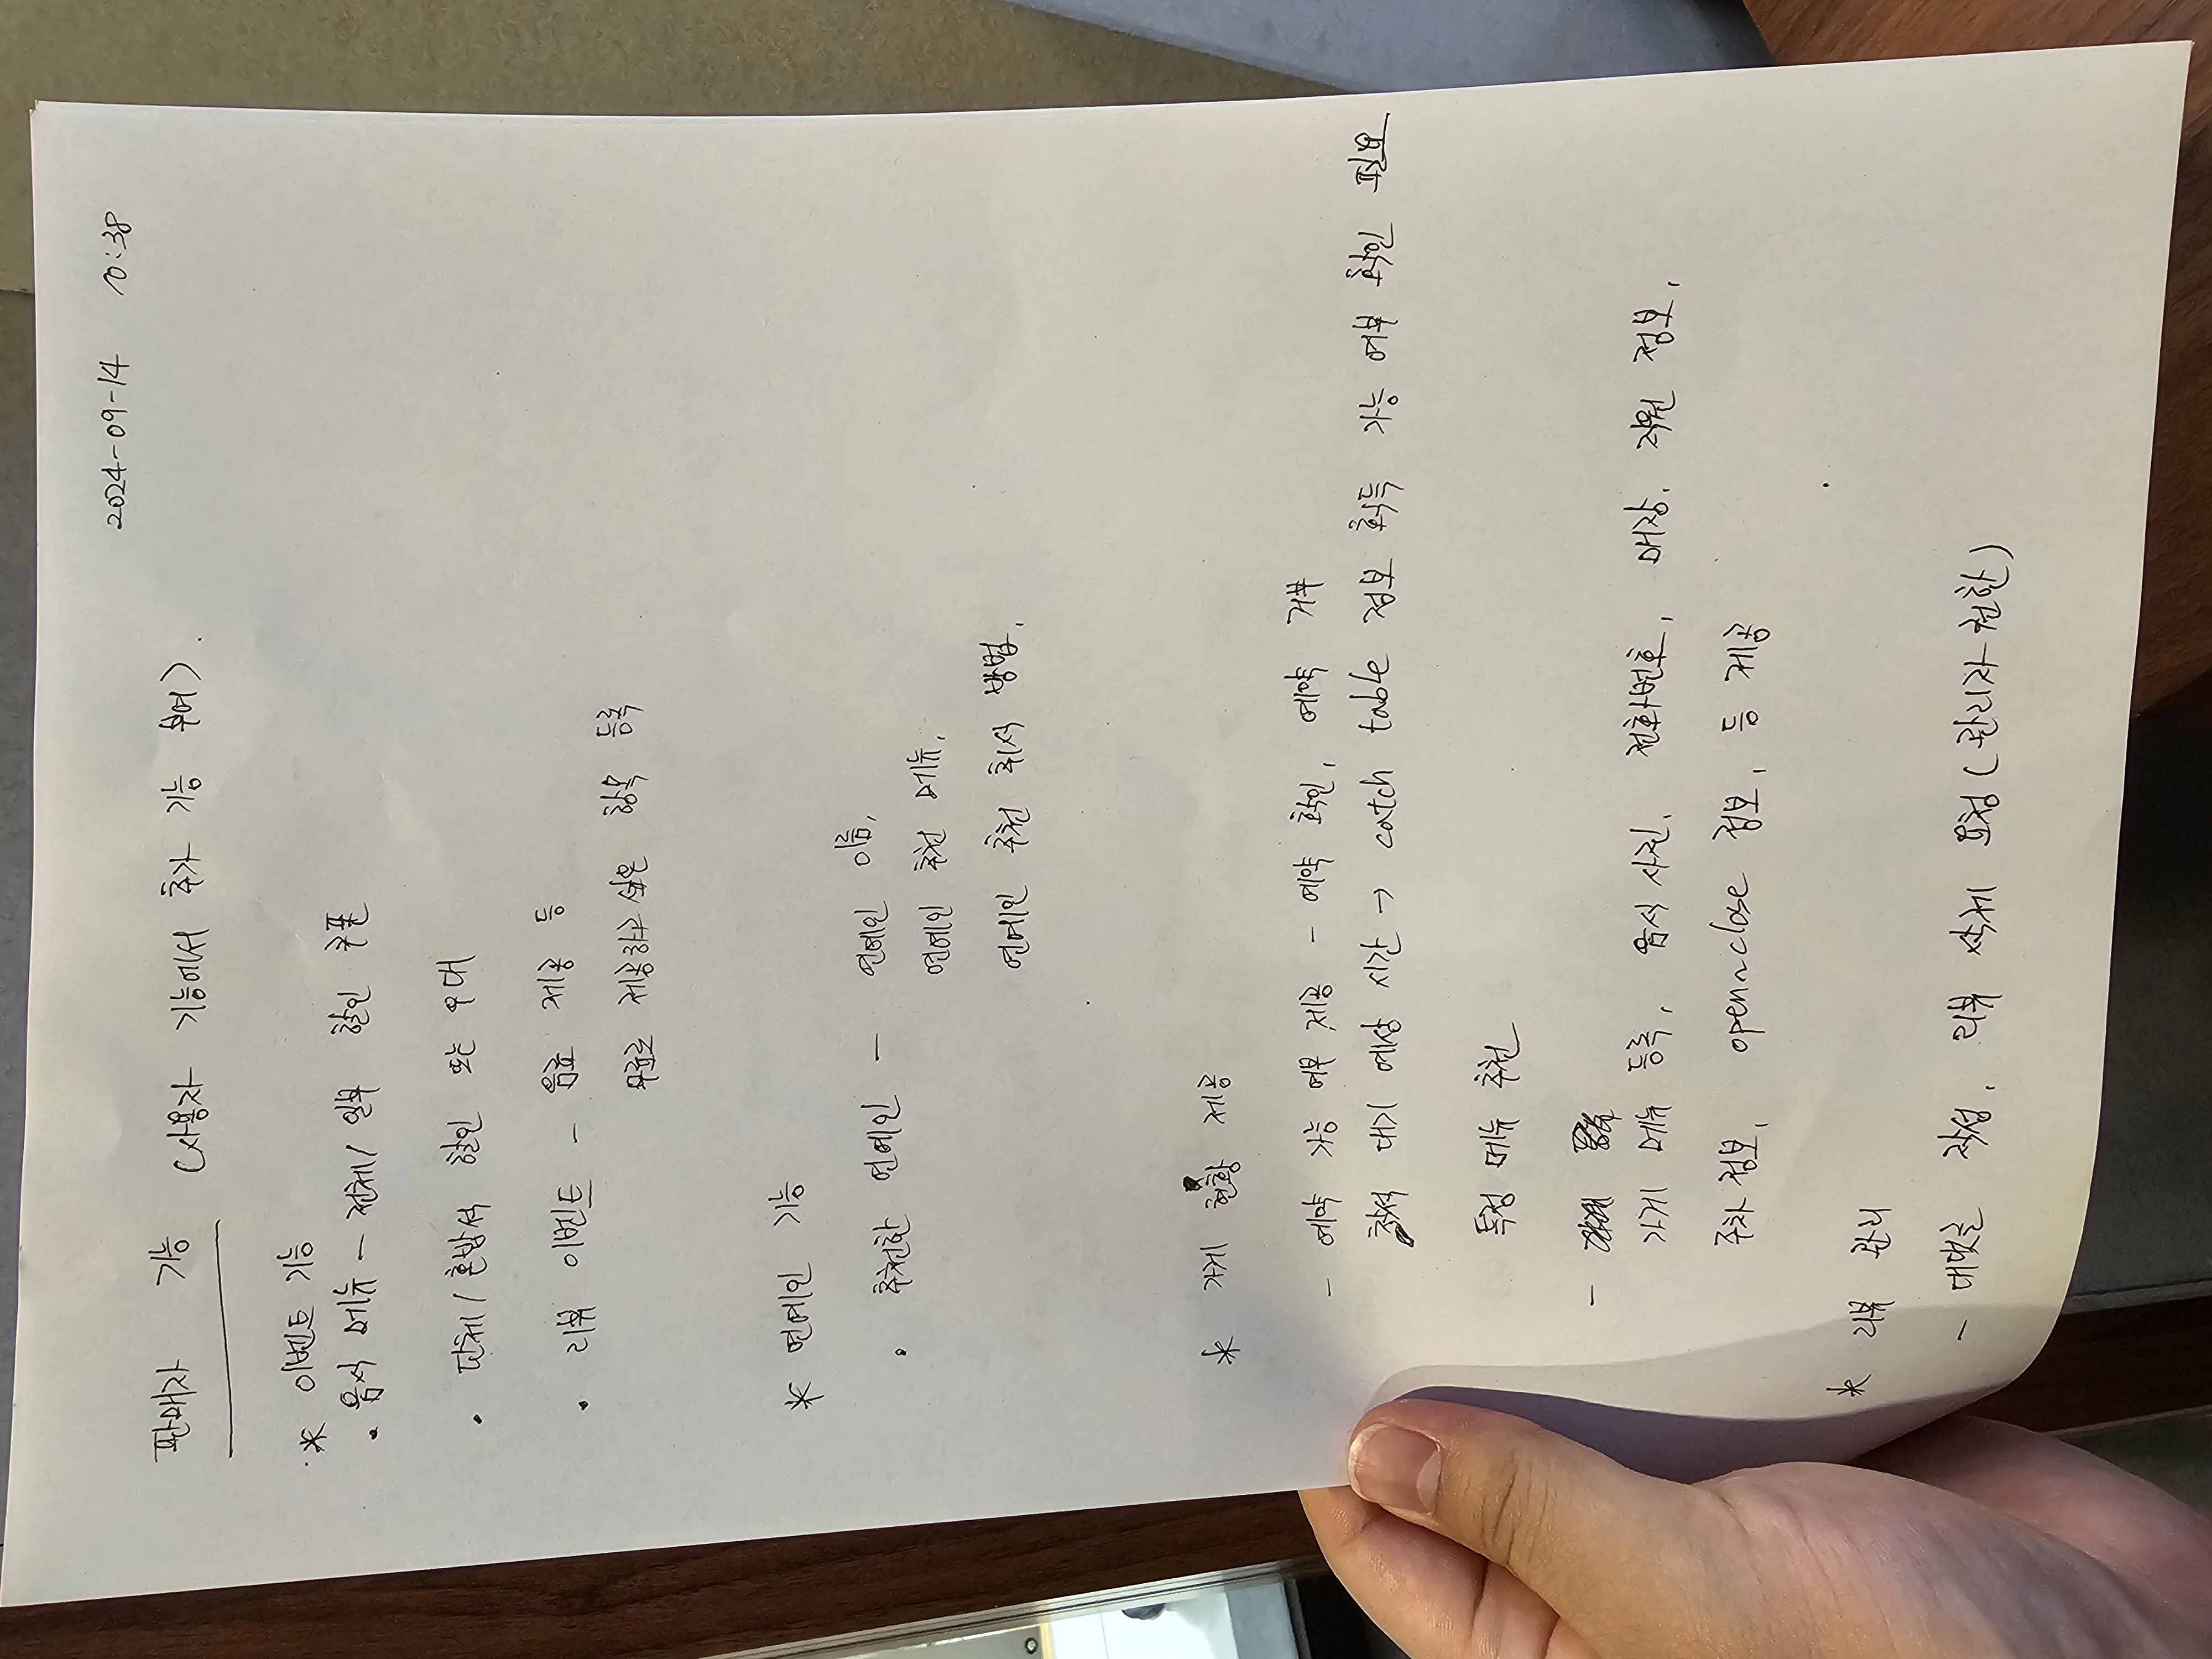 2024-09-14 10:38
판매자 기능 (사용자 기능에서 추가 기능 부여).
* 이벤트 기능
. 음식 메뉴 - 전체/ 일부 할인 쿠폰
. 단체/혼밥석 할인 또는 우대
. 리뷰 이벤트 - 음료 제공 등
무료로 제공하고 싶은 항목 등록
* 연예인 기능
. 추천한 연예인 - 연예인 이름,
연예인 추천 메뉴,
연예인 추천 취식 방법,
* 가게 현황 제공
- 예약 가능 여부 제공 - 예약 확인, 예약 거부
착석 대기 예상 시간 → catch table 정보 획득 가능 여부 확인 필요
특정 메뉴 추천
-
가게 메뉴 등록, 음식 사진, 전화번호, 매장, 직원 정보,
주차 정보, open~close 정보, 등 제공
* 리뷰 관리
- 대댓글 작성, 리뷰 삭제 요청 (관리자 권한)